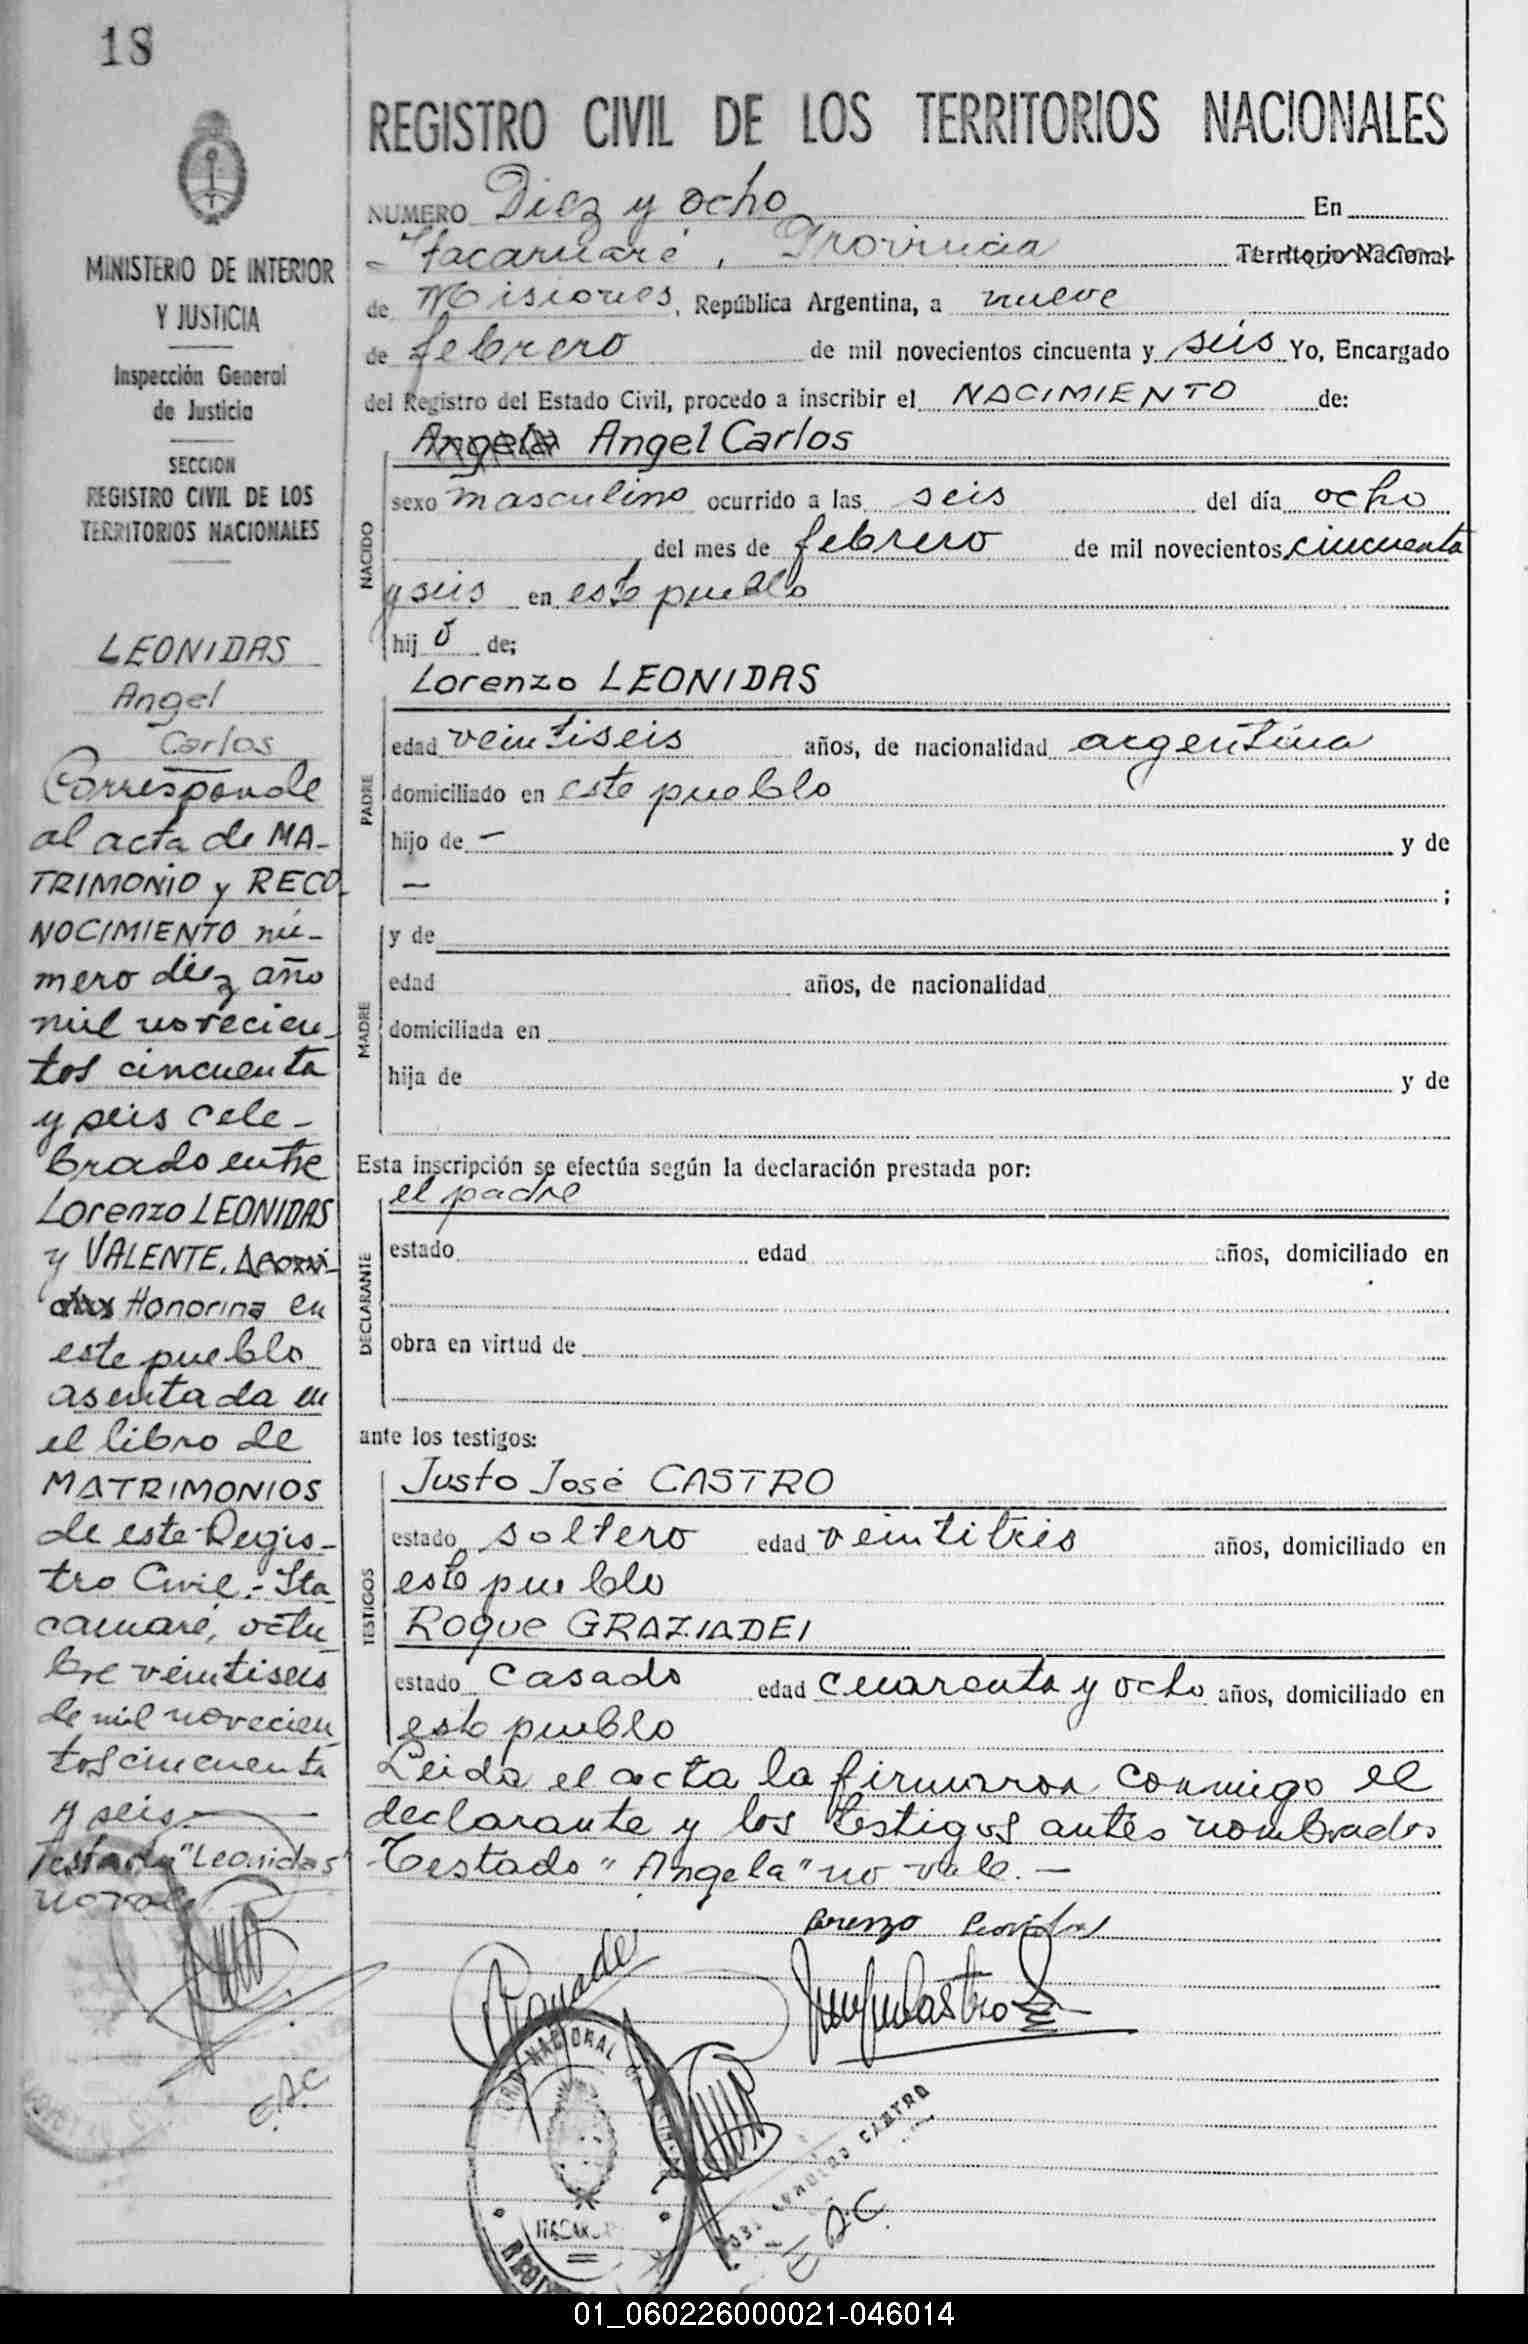 18
MINISTERIO DE INTERIOR
Y JUSTICIA
Inspección General
de Justicia
SECCION
REGISTRO CIVIL DE LOS
TERRITORIOS NACIONALES
LEONIDAS
Angel
Carlos
Corresponde
al acta de MA-
TRIMONIO y RECO-
NOCIMIENTO nú-
mero diez año
mil novecien-
tos cincuenta
y seis cele-
brado entre
Lorenzo LEONIDAS
y VALENTE, Leoni-
das Honorina en
este pueblo
asentada en
el libro de
MATRIMONIOS
de este Regis-
tro Civil.- Ita
caruaré, octu
bre veintiseis
de mil novecien
tos cincuenta
y seis.
Testado "Leonidas"
no vale
E.R.C.
REGISTRO CIVIL DE LOS TERRITORIOS NACIONALES
NUMERO Diez y ocho En
Itacaruaré, Provincia Territorio Nacional
de Misiones, República Argentina, a nueve
de febrero de mil novecientos cincuenta y seis Yo, Encargado
del Registro del Estado Civil, procedo a inscribir el NACIMIENTO de:
Angela Angel Carlos
NACIDO
sexo masculino ocurrido a las seis del día ocho
del mes de febrero de mil novecientos cincuenta
y seis en este pueblo
hijo de;
Lorenzo LEONIDAS
PADRE
edad veintiseis años, de nacionalidad argentina
domiciliado en este pueblo
hijo de – y de
– ;
MADRE
y de
edad años, de nacionalidad
domiciliada en
hija de y de
Esta inscripción se efectúa según la declaración prestada por:
el padre
DECLARANTE
estado edad años, domiciliado en
obra en virtud de
ante los testigos:
Justo José CASTRO
TESTIGOS
estado soltero edad veintitrés años, domiciliado en
este pueblo
Roque GRAZIADEI
estado casado edad cuarenta y ocho años, domiciliado en
este pueblo
Leida el acta la firmaron conmigo el
declarante y los testigos antes nombrados
Testado "Angela" no vale.–
Lorenzo Leonidas
NACIONAL
CASTRO
E.R.C.
01_060226000021-046014